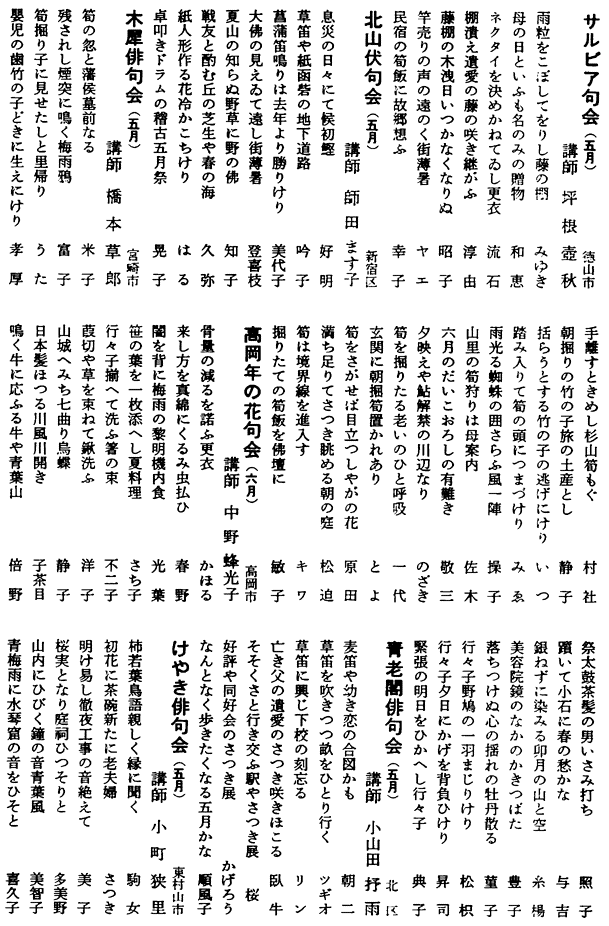 サルビア句会（五月） 徳山市
講師 坪根 壺秋
雨粒をこぼしてをりし藤の棚 みゆき
母の日といふも名のみの贈物 和恵
ネクタイを決めかねてゐし更衣 流石
棚潰え遺愛の藤の咲き継がふ 淳由
藤棚の木洩日いつかなくなりぬ 昭子
竿売りの声の遠のく街薄暑 ヤエ
民宿の筍飯に故郷想ふ 幸子
北山伏句会（五月） 新宿区
講師 師田 ます子
息災の日々にて候初鰹 好明
草笛や紙函砦の地下道路 吟子
菖蒲笛鳴りは去年より勝りけり 美代子
大佛の見えゐて遠し街薄暑 登喜枝
夏山の知らぬ野草に野の佛 知子
戦友と酌む丘の芝生や春の海 久弥
紙人形作る花冷かこちけり はる
卓叩きドラムの稽古五月祭 晃子
木犀俳句会（五月） 宮崎市
講師 橋本 草郎
筍の忽と藩侯墓前なる 米子
残されし煙突に鳴く梅雨鴉 富子
筍掘り子に見せたしと里帰り うた
嬰児の歯竹の子どきに生えにけり 孝厚
手離すときめし杉山筍もぐ 村社
朝掘りの竹の子旅の土産とし 静子
括らうとする竹の子の逃げにけり いつ
踏み入りて筍の頭につまづけり みゑ
雨光る蜘蛛の囲さらふ風一陣 操子
山里の筍狩りは母案内 佐木
六月のだいこおろしの有難き 敬三
夕映えや鮎解禁の川辺なり のざき
筍を掘りたる老いのひと呼吸 一代
玄関に朝掘筍置かれあり とよ
筍をさがせば目立つしやがの花 原田
満ち足りてさつき眺める朝の庭 松迫
筍は境界線を進入す キワ
掘りたての筍飯を佛壇に 敏子
高岡年の花句会（六月） 高岡市
講師 中野 蜂光子
骨量の減るを諾ふ更衣 かほる
来し方を真綿にくるみ虫払ひ 春野
闇を背に梅雨の黎明機内食 光葉
笹の葉を一枚添へし夏料理 さち子
行々子揃へて洗ふ箸の束 不二子
葭切や草を束ねて鍬洗ふ 洋子
山城へみち七曲り烏蝶 静子
日本髪ほつる川風川開き 子茶目
鳴く牛に応ふる牛や青葉山 倍野
祭太鼓茶髪の男いさみ打ち 照子
躓いて小石に春の愁かな 与吉
銀ねずに染みる卯月の山と空 糸楊
美容院鏡のなかのかきつばた 豊子
落ちつけぬ心の揺れの牡丹散る 菫子
行々子野鳩の一羽まじりけり 松枳
行々子夕日にかげを背負ひけり 昇司
緊張の明日をひかへし行々子 典子
青老閣俳句会（五月） 北区
講師 小山田 抒雨
麦笛や幼き恋の合図かも 朝二
草笛を吹きつつ畝をひとり行く ツギオ
草笛に興じ下校の刻忘る リン
亡き父の遺愛のさつき咲きほこる 臥牛
そそくさと行き交ふ駅やさつき展 桜
好評や同好会のさつき展 かげろう
なんとなく歩きたくなる五月かな 順風子
けやき俳句会（五月） 東村山市
講師 小町 狭里
柿若葉鳥語親しく縁に聞く 駒女
初花に茶碗新たに老夫婦 さつき
明け易し徹夜工事の音絶えて 美子
桜実となり庭祠ひつそりと 多美野
山内にひびく鐘の音青葉風 美智子
青梅雨に水琴窟の音をひそと 喜久子